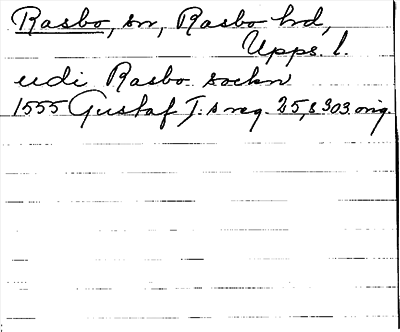 Rasbo, sn, Rasbo hd,
Upps. l.
udi Rasbo sockn
1555 Gustaf I:s reg. 25, s 303. orig.